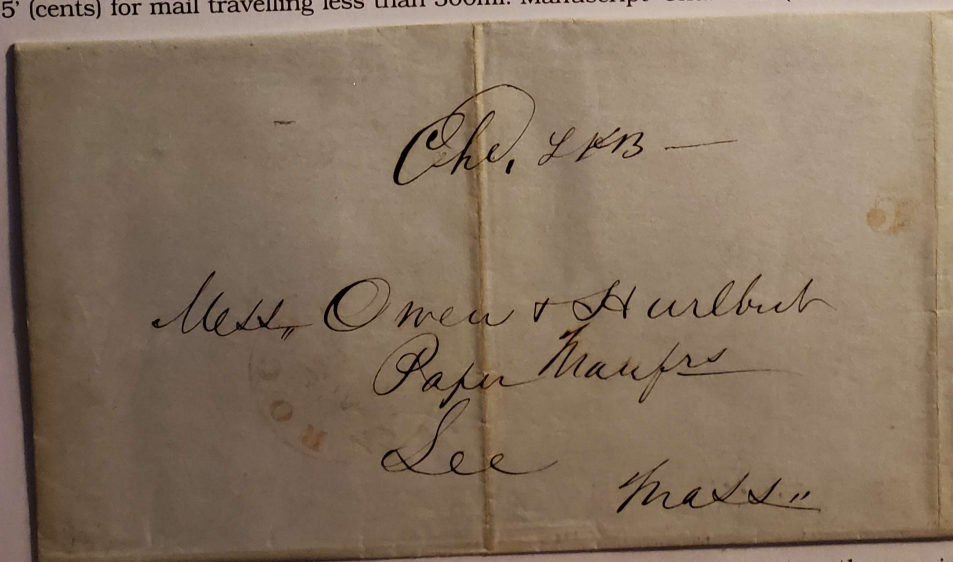 5' (cents) for mail travelling less than 300ml. Manuscript
Chd, LKB —
Mess,, Owen & Hurlbut
Paper Manfrs
Lee
Mass,,